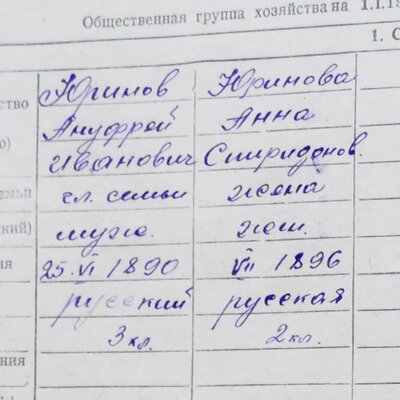 Общественная группа хозяйства на 1.I.19
1. С
ство Юринов Юринова
Ануфрей Анна
о) Иванович Спиридонов.
емьи гл. семьи жена
ский) муж. жен.
ия 25.VI 1890 VII 1896
русский русская
3 кл. 2 кл.
ния